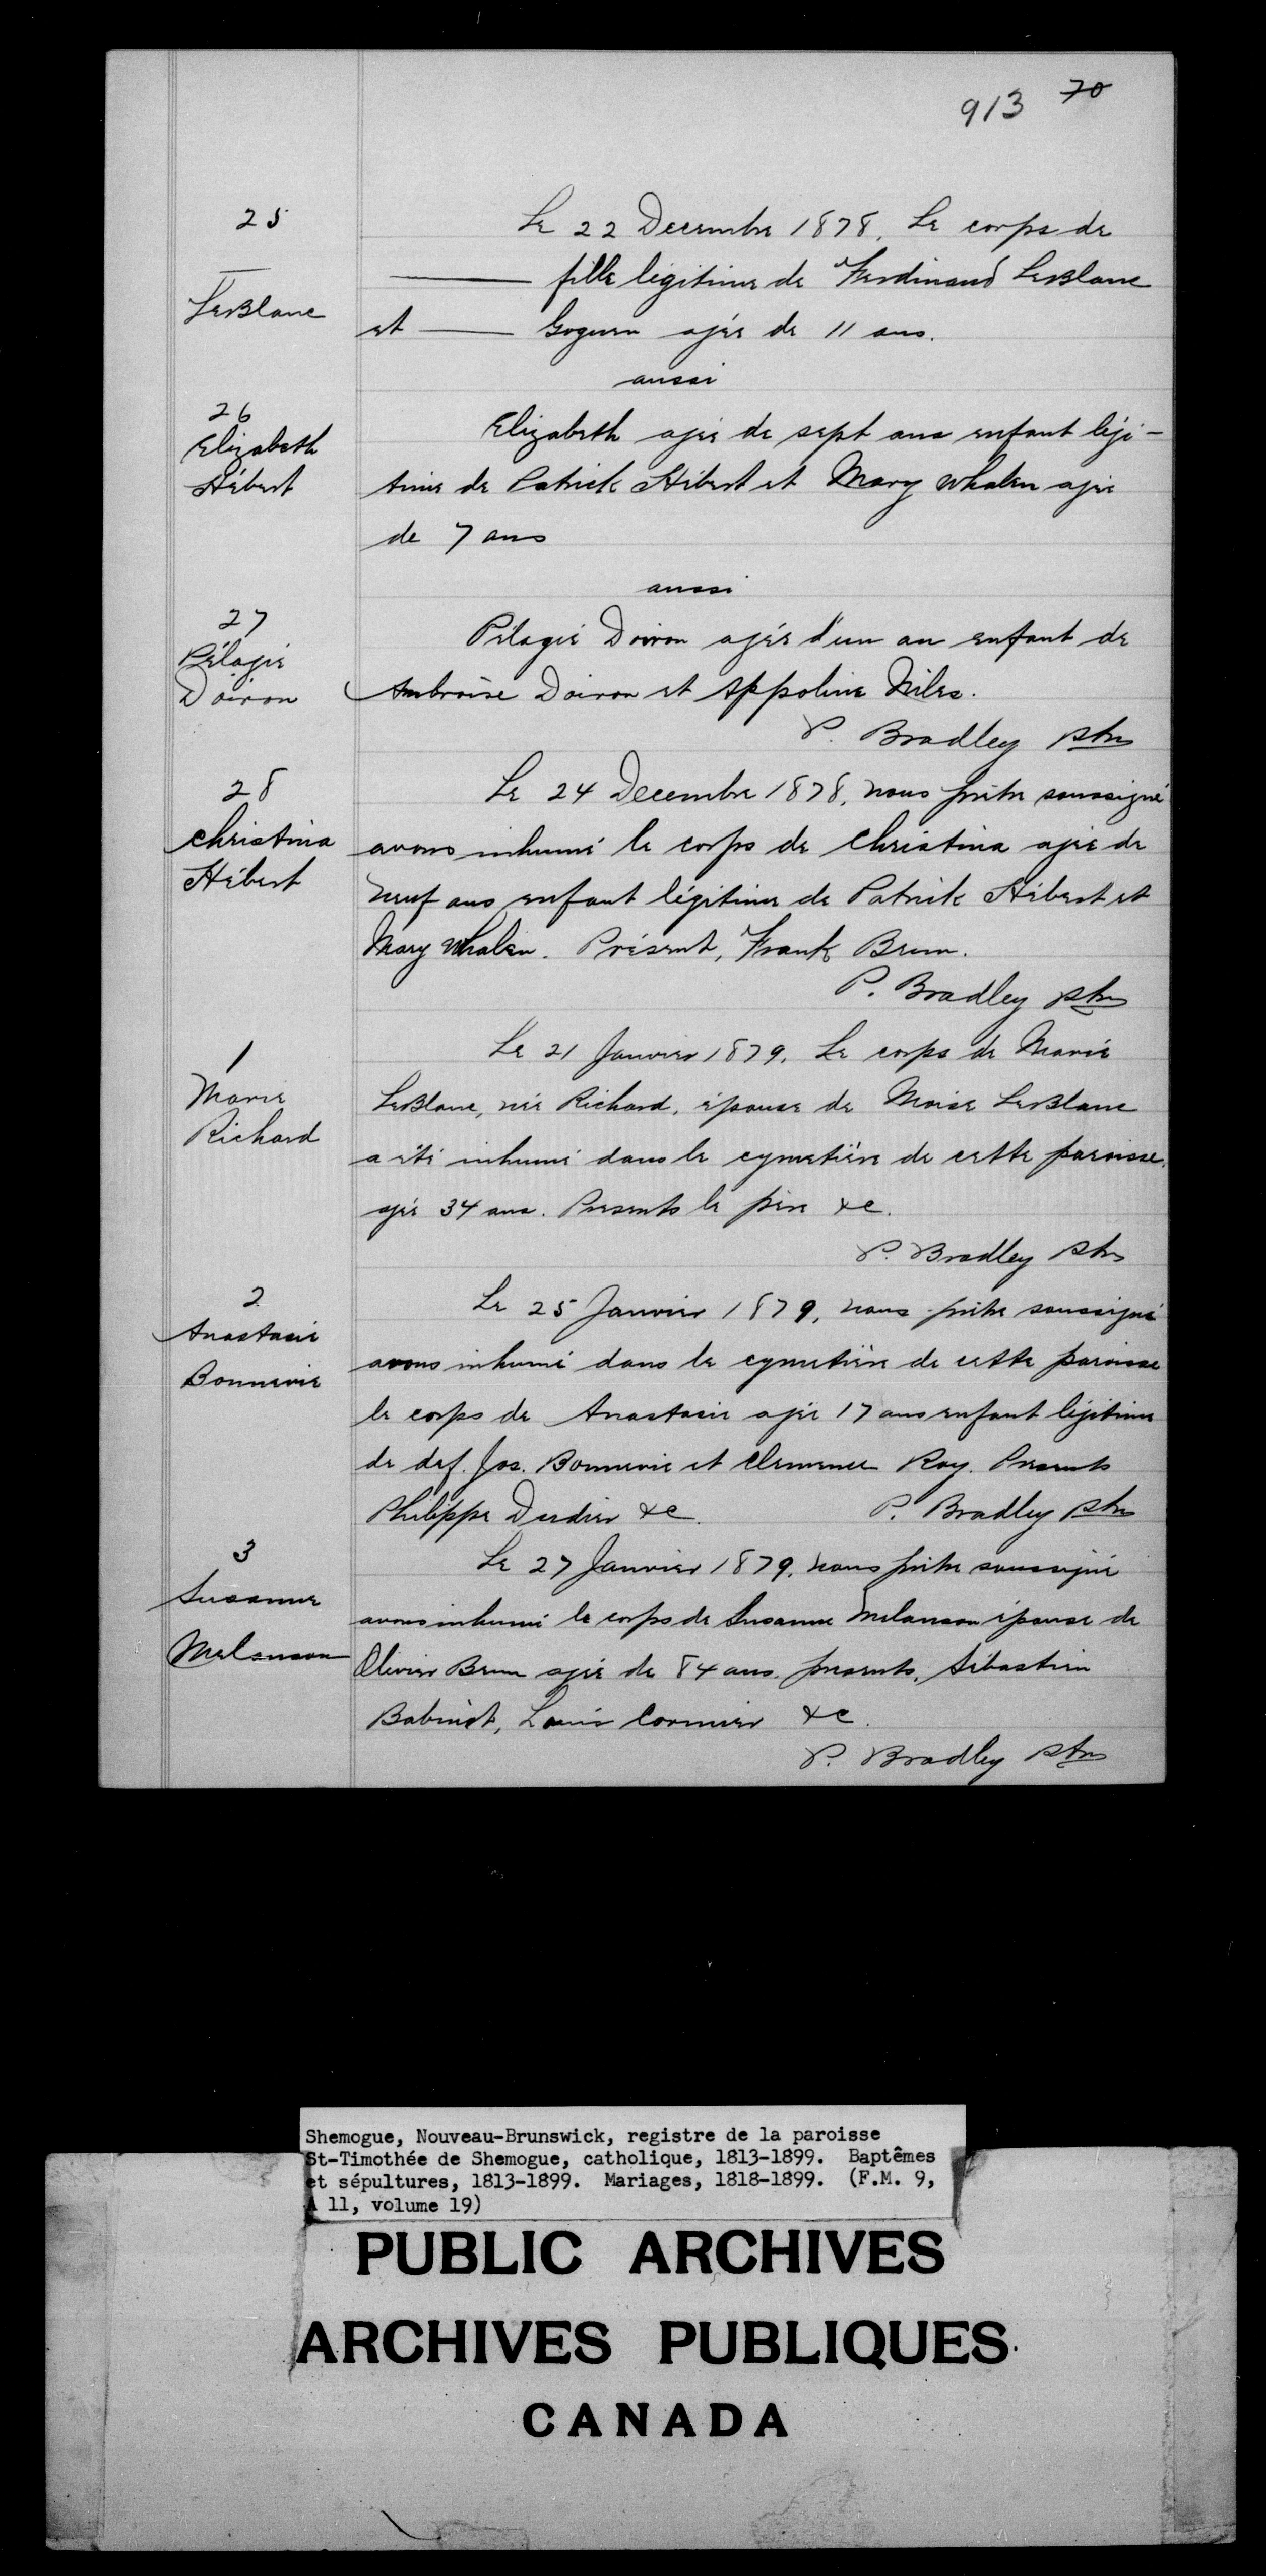 913 70
25
LeBlanc
Le 22 Decembre 1878. Le corps de
—— fille légitime de Ferdinand LeBlanc
et —— Goguen agée de 11 ans.
aussi
26
Elizabeth
Hébert
Elizabeth agée de sept ans enfant légi-
time de Patrick Hébert et Mary Whalen agée
de 7 ans
aussi
27
Pélagie
Doiron
Pélagie Doiron agée d'un an enfant de
Ambroise Doiron et Appoline Niles.
P. Bradley ptre
28
Christina
Hébert
Le 24 Decembre 1878, nous prêtre soussigné
avons inhumé le corps de Christina agée de
neuf ans enfant légitime de Patrick Hébert et
Mary Whalen. Présent, Frank Brun.
P. Bradley ptre
1
Marie
Richard
Le 21 Janvier 1879. Le corps de Marie
LeBlanc, née Richard, épouse de Moise LeBlanc
a été inhumé dans le cymetière de cette paroisse,
agée 34 ans. Presents le père &c.
P. Bradley ptre
2
Anastasie
Bonnevie
Le 25 Janvier 1879, nous prêtre soussigné
avons inhumé dans le cymetière de cette paroisse
le corps de Anastasie agée 17 ans enfant légitime
de def. Jos. Bonnevie et Clemence Roy. Presents
Philippe &c. P. Bradley ptre
3
Susanne
Melanson
Le 27 Janvier 1879. nous prêtre soussigné
avons inhumé le corps de Susanne Melanson épouse de
Olivier Brun agée de 84 ans. presents, Sébastien
Babinot, Louis Cormier &c.
P. Bradley ptre
Shemogue, Nouveau-Brunswick, registre de la paroisse
St-Timothée de Shemogue, catholique, 1813-1899. Baptêmes
et sépultures, 1813-1899. Mariages, 1818-1899. (F.M. 9,
A 11, volume 19)
PUBLIC ARCHIVES
ARCHIVES PUBLIQUES
CANADA